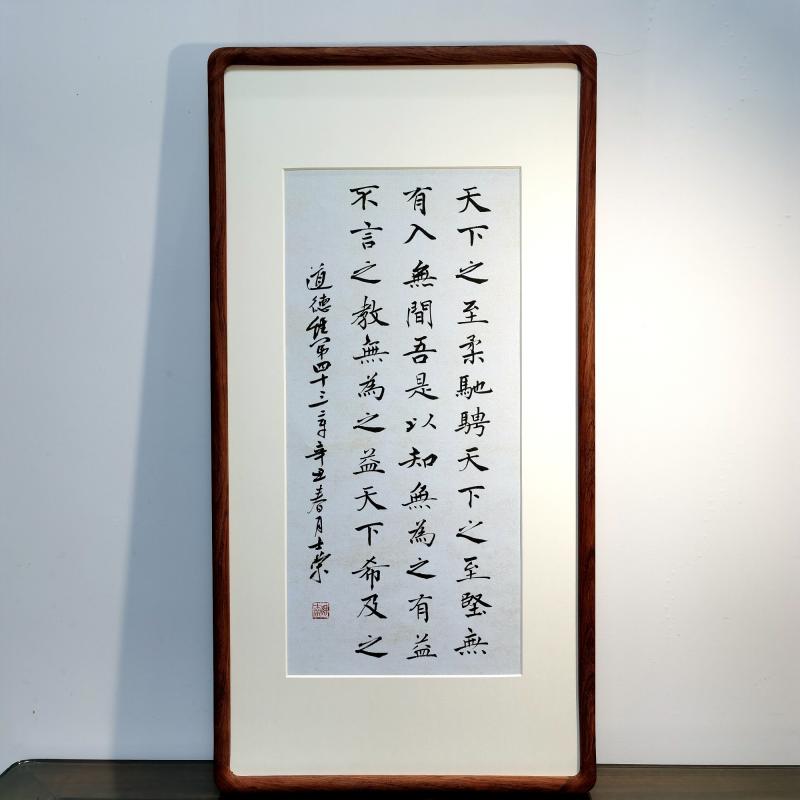 天下之至柔馳騁天下之至堅無
有入無間吾是以知無為之有益
不言之教無為之益天下希及之
道德經第四十三章辛丑春月士榮